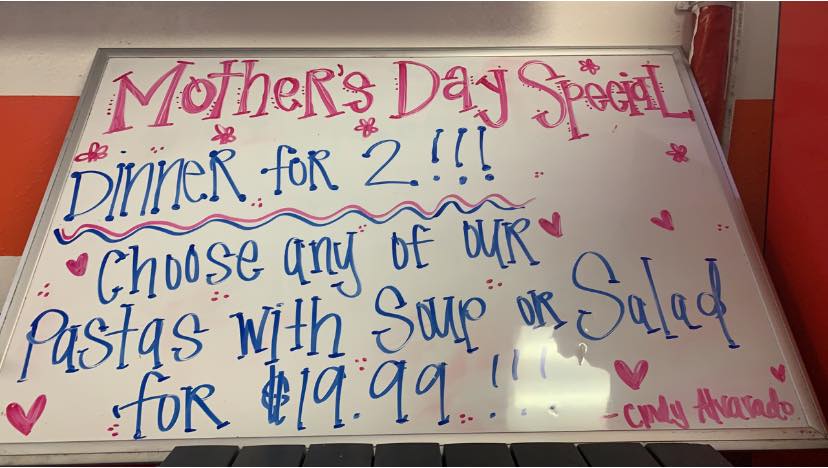 Mother's Day Special
Dinner for 2!!!
Choose any of our
Pastas with Soup or Salad
for $19.99 !!!
- Cindy Alvarado